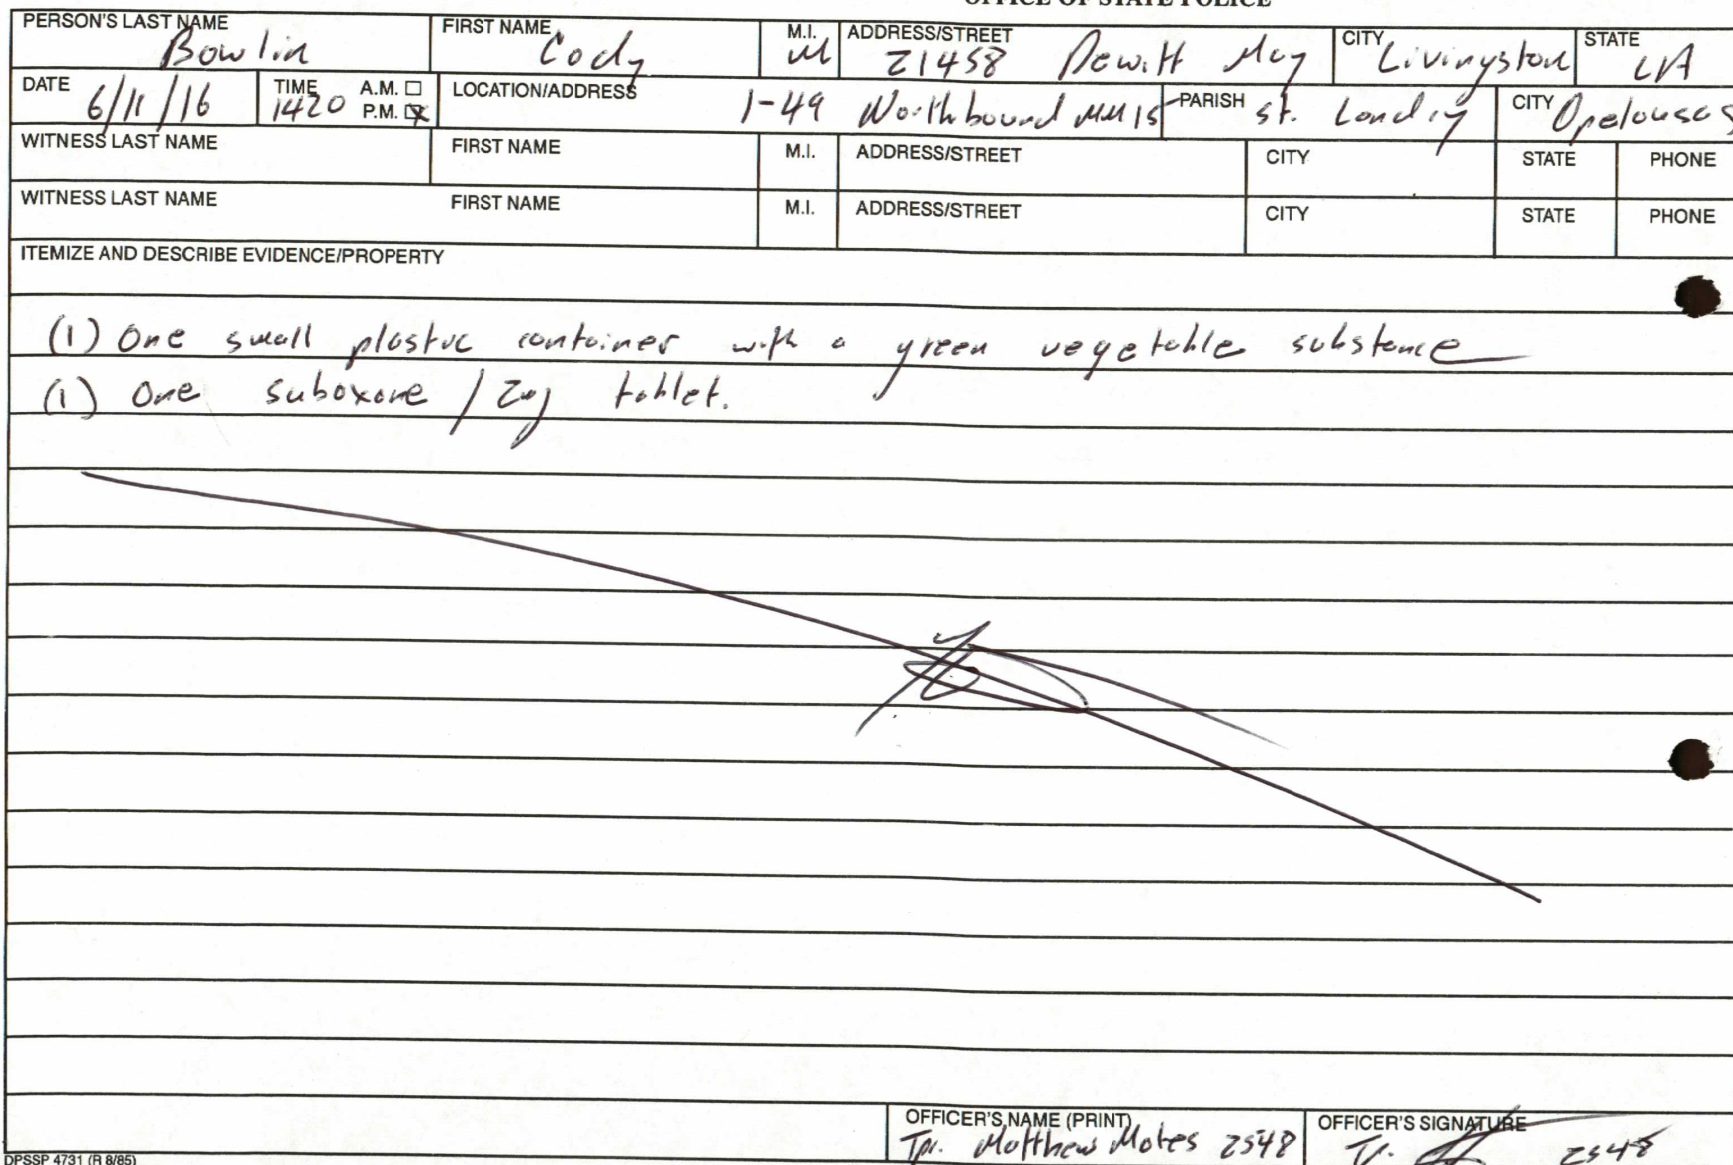 OFFICE OF STATE POLICE
PERSON'S LAST NAME Bowlin FIRST NAME Cody M.I. M ADDRESS/STREET 21458 Dewitt May CITY Livingston STATE LA
DATE 6/11/16 TIME 1420 A.M. ☐ P.M. ☒ LOCATION/ADDRESS I-49 Northbound MM 15 PARISH St. Landry CITY Opelousas
WITNESS LAST NAME FIRST NAME M.I. ADDRESS/STREET CITY STATE PHONE
WITNESS LAST NAME FIRST NAME M.I. ADDRESS/STREET CITY STATE PHONE
ITEMIZE AND DESCRIBE EVIDENCE/PROPERTY
(1) One small plastic container with a green vegetable substance
(1) One suboxone / tablet.
OFFICER'S NAME (PRINT) Tpr. Matthew Mates 2548 OFFICER'S SIGNATURE Tr. 2548
DPSSP 4731 (R 8/85)